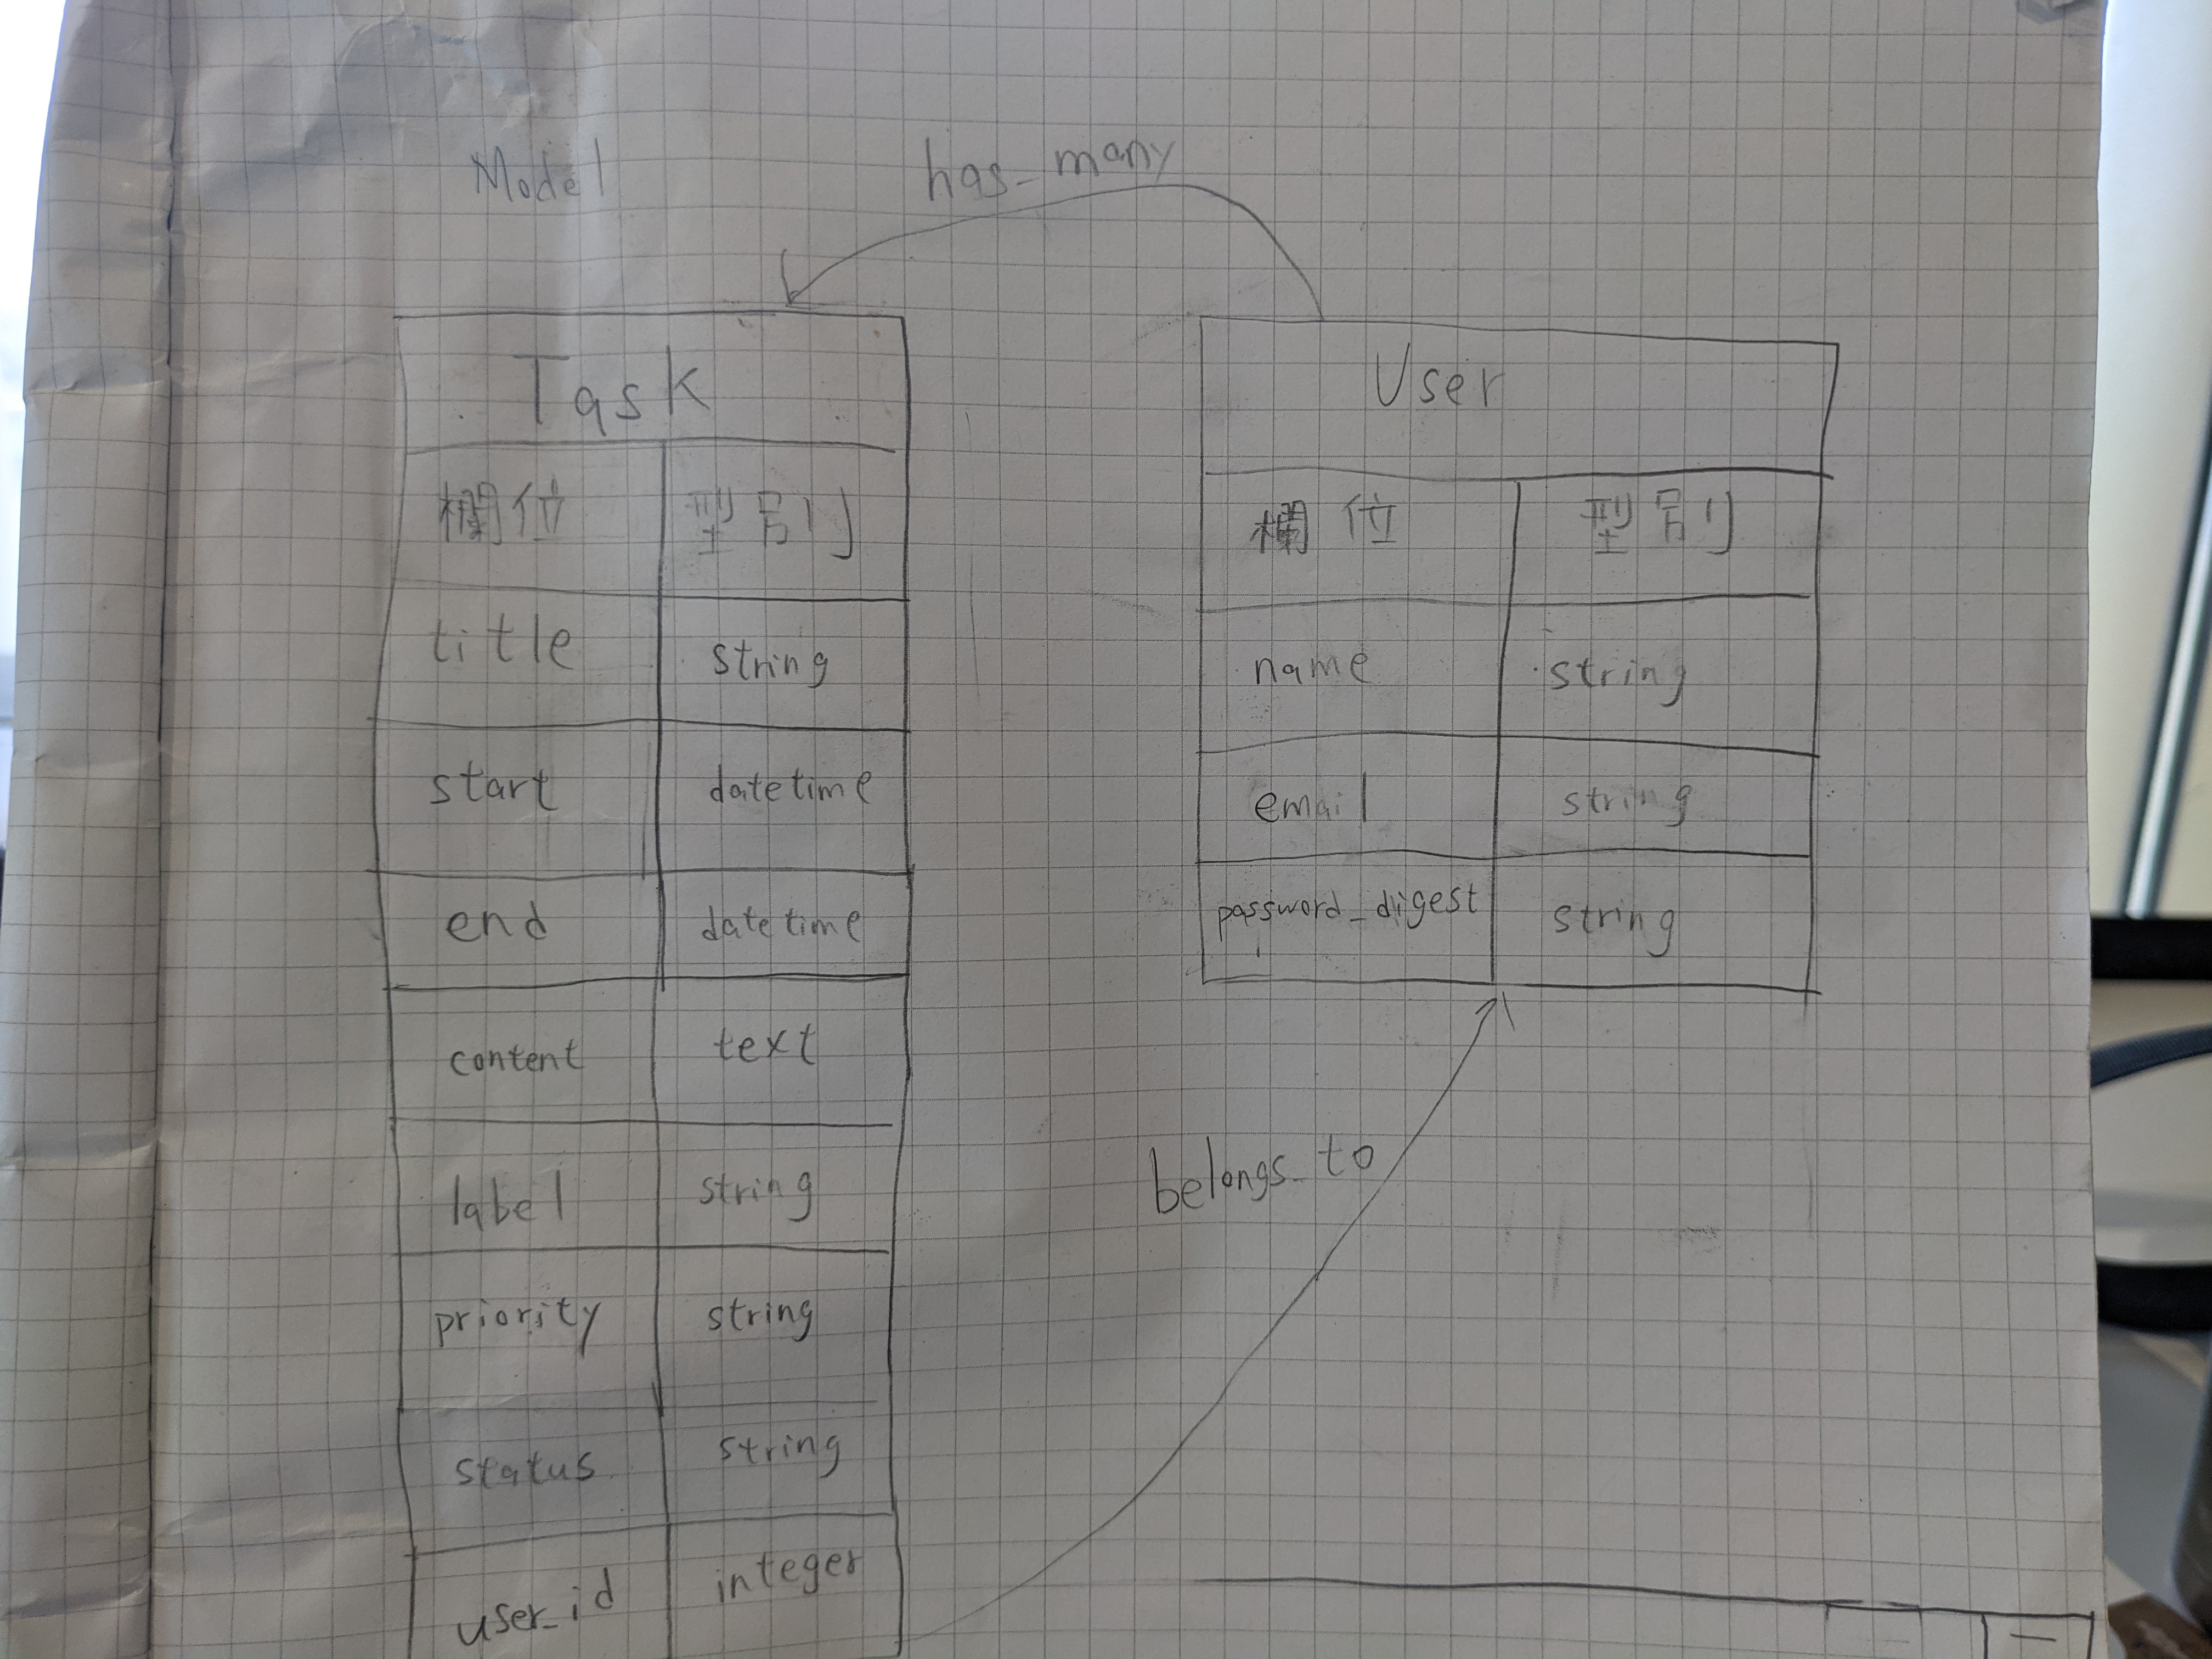 Model
has_many
Task
欄位 型別
title string
start datetime
end datetime
content text
label string
priority string
status string
user_id integer
User
欄位 型別
name string
email string
password_digest string
belongs_to